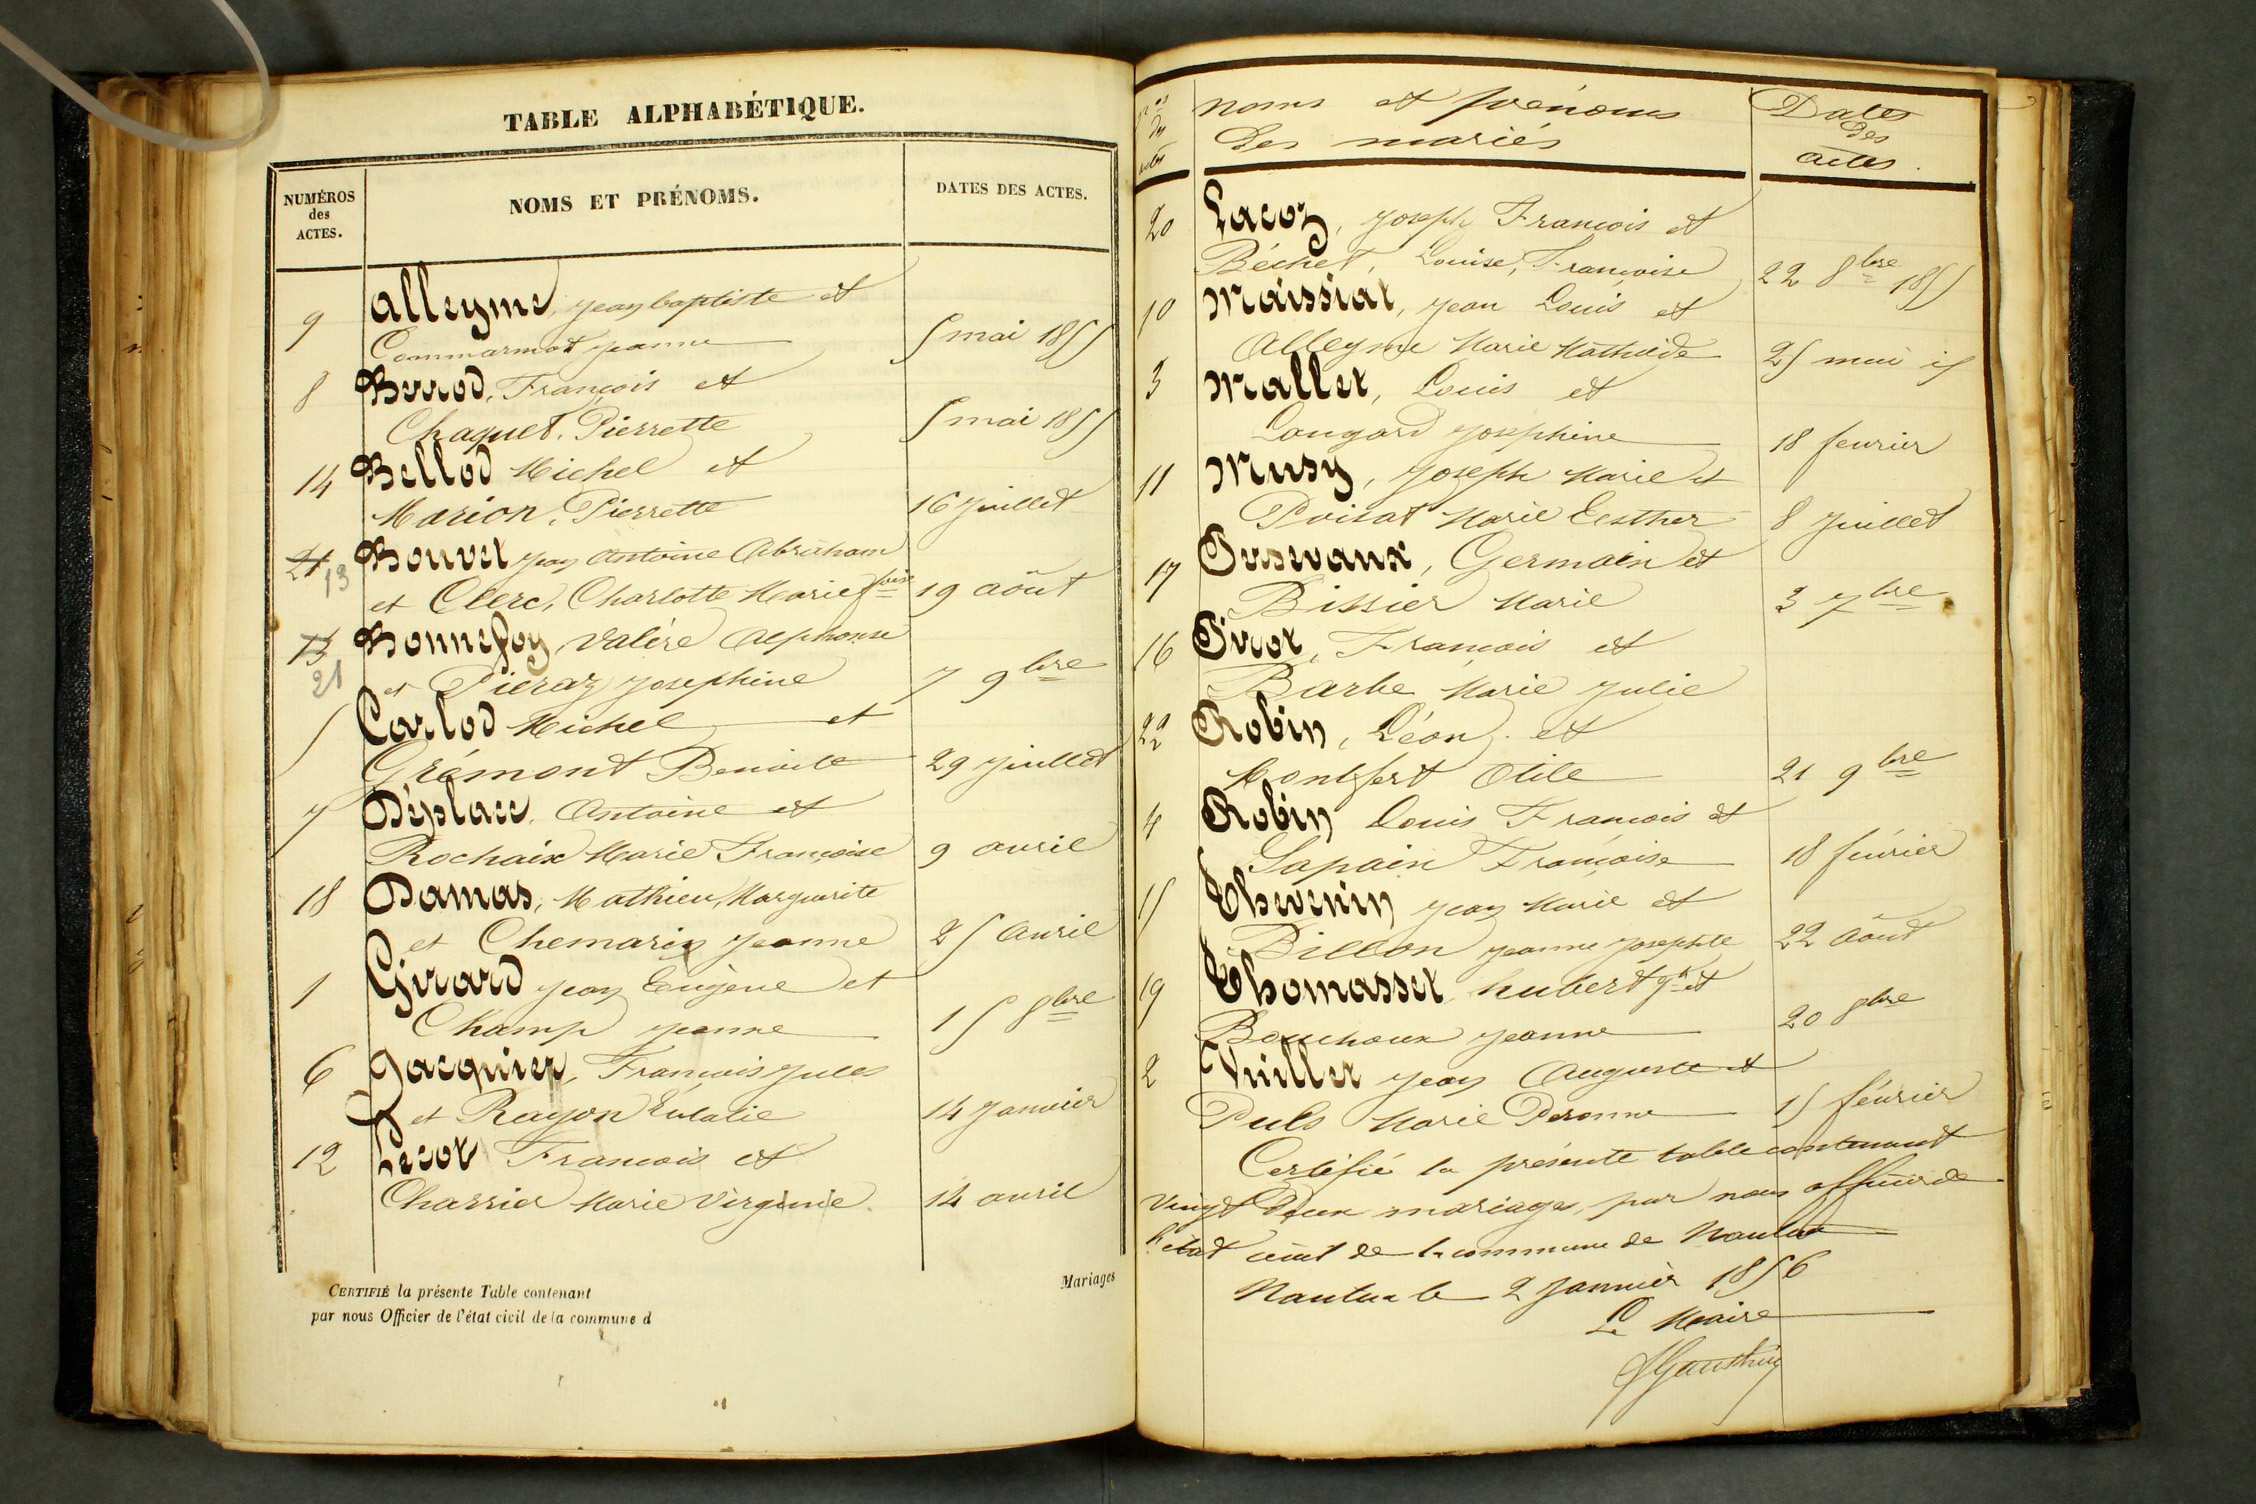 TABLE ALPHABÉTIQUE.
NUMÉROS des ACTES.
NOMS ET PRÉNOMS.
DATES DES ACTES.
9 Alleyme, Jean baptiste et
Commarmot Jeanne 5 mai 1855
8 Berrod, François et
Chaquet, Pierrette 5 mai 1855
14 Bellod Michel et
Marion, Pierrette 16 Juillet
21 13 Bouvet Jean Antoine Abraham
et Clerc, Charlotte Marie fçoise 19 août
13 21 Bonnefoy Valère Alphonse
et Pieraz Josephine 7 9bre
5 Carlod Michel et
Grémont Benoite 29 Juillet
7 Déplace, Antoine et
Rochaix Marie Françoise 9 avril
18 Damas, Mathieu, Marguerite
et Chemarin Jeanne 25 Avril
1 Girard Jean Eugène et
Champ Jeanne 15 8bre
6 Jacquier, François Jules
et Rayon Eulalie 14 Janvier
12 Lecot François et
Charrier Marie Virginie 14 avril
CERTIFIÉ la présente Table contenant
par nous Officier de l'état civil de la commune d
Mariages
nos des actes
noms et prénoms
des mariés
Dates
des
actes.
20 Lacoz, Joseph François et
Béchet, Louise, Françoise 22 8bre 1855
10 Maissiat, Jean Louis et
Alleyme Marie Mathilde 25 mai
3 Mallet, Louis et
Lougard Josephine 18 fevrier
11 Musy, Joseph Marie et
Poisat Marie Eesther 8 Juillet
17 Germain et
Bissier Marie 3 7bre
16 François et
Barbe Marie Julie
22 Robin, Léon et
Montfert Otile 21 9bre
4 Robin Louis François et
Sapain Françoise 18 février
15 Thevenin Jean Marie et
Billon Jeanne Josephte 22 Août
19 Thomasset, hubert et
Bouchoux Jeanne 20 8bre
2 Vuillet Jean Auguste et
Puls Marie Peronne 15 février
Certifié la présente table contenant
vingt Deux mariages, par nous officier de
l'état civil de la commune de Nantua
Nantua le 2 Janvier 1856
Le Maire